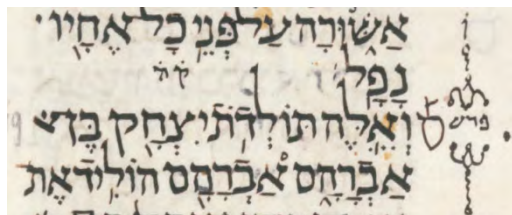 אַשּׁוּרָה עַל פְּנֵי כָל אֶחָיו
נָפָל׃ קה
פרש
וְאֵלֶּה תּוֹלְדֹת יִצְחָק בֶּן
אַבְרָהָם אַבְרָהָם הוֹלִיד אֶת